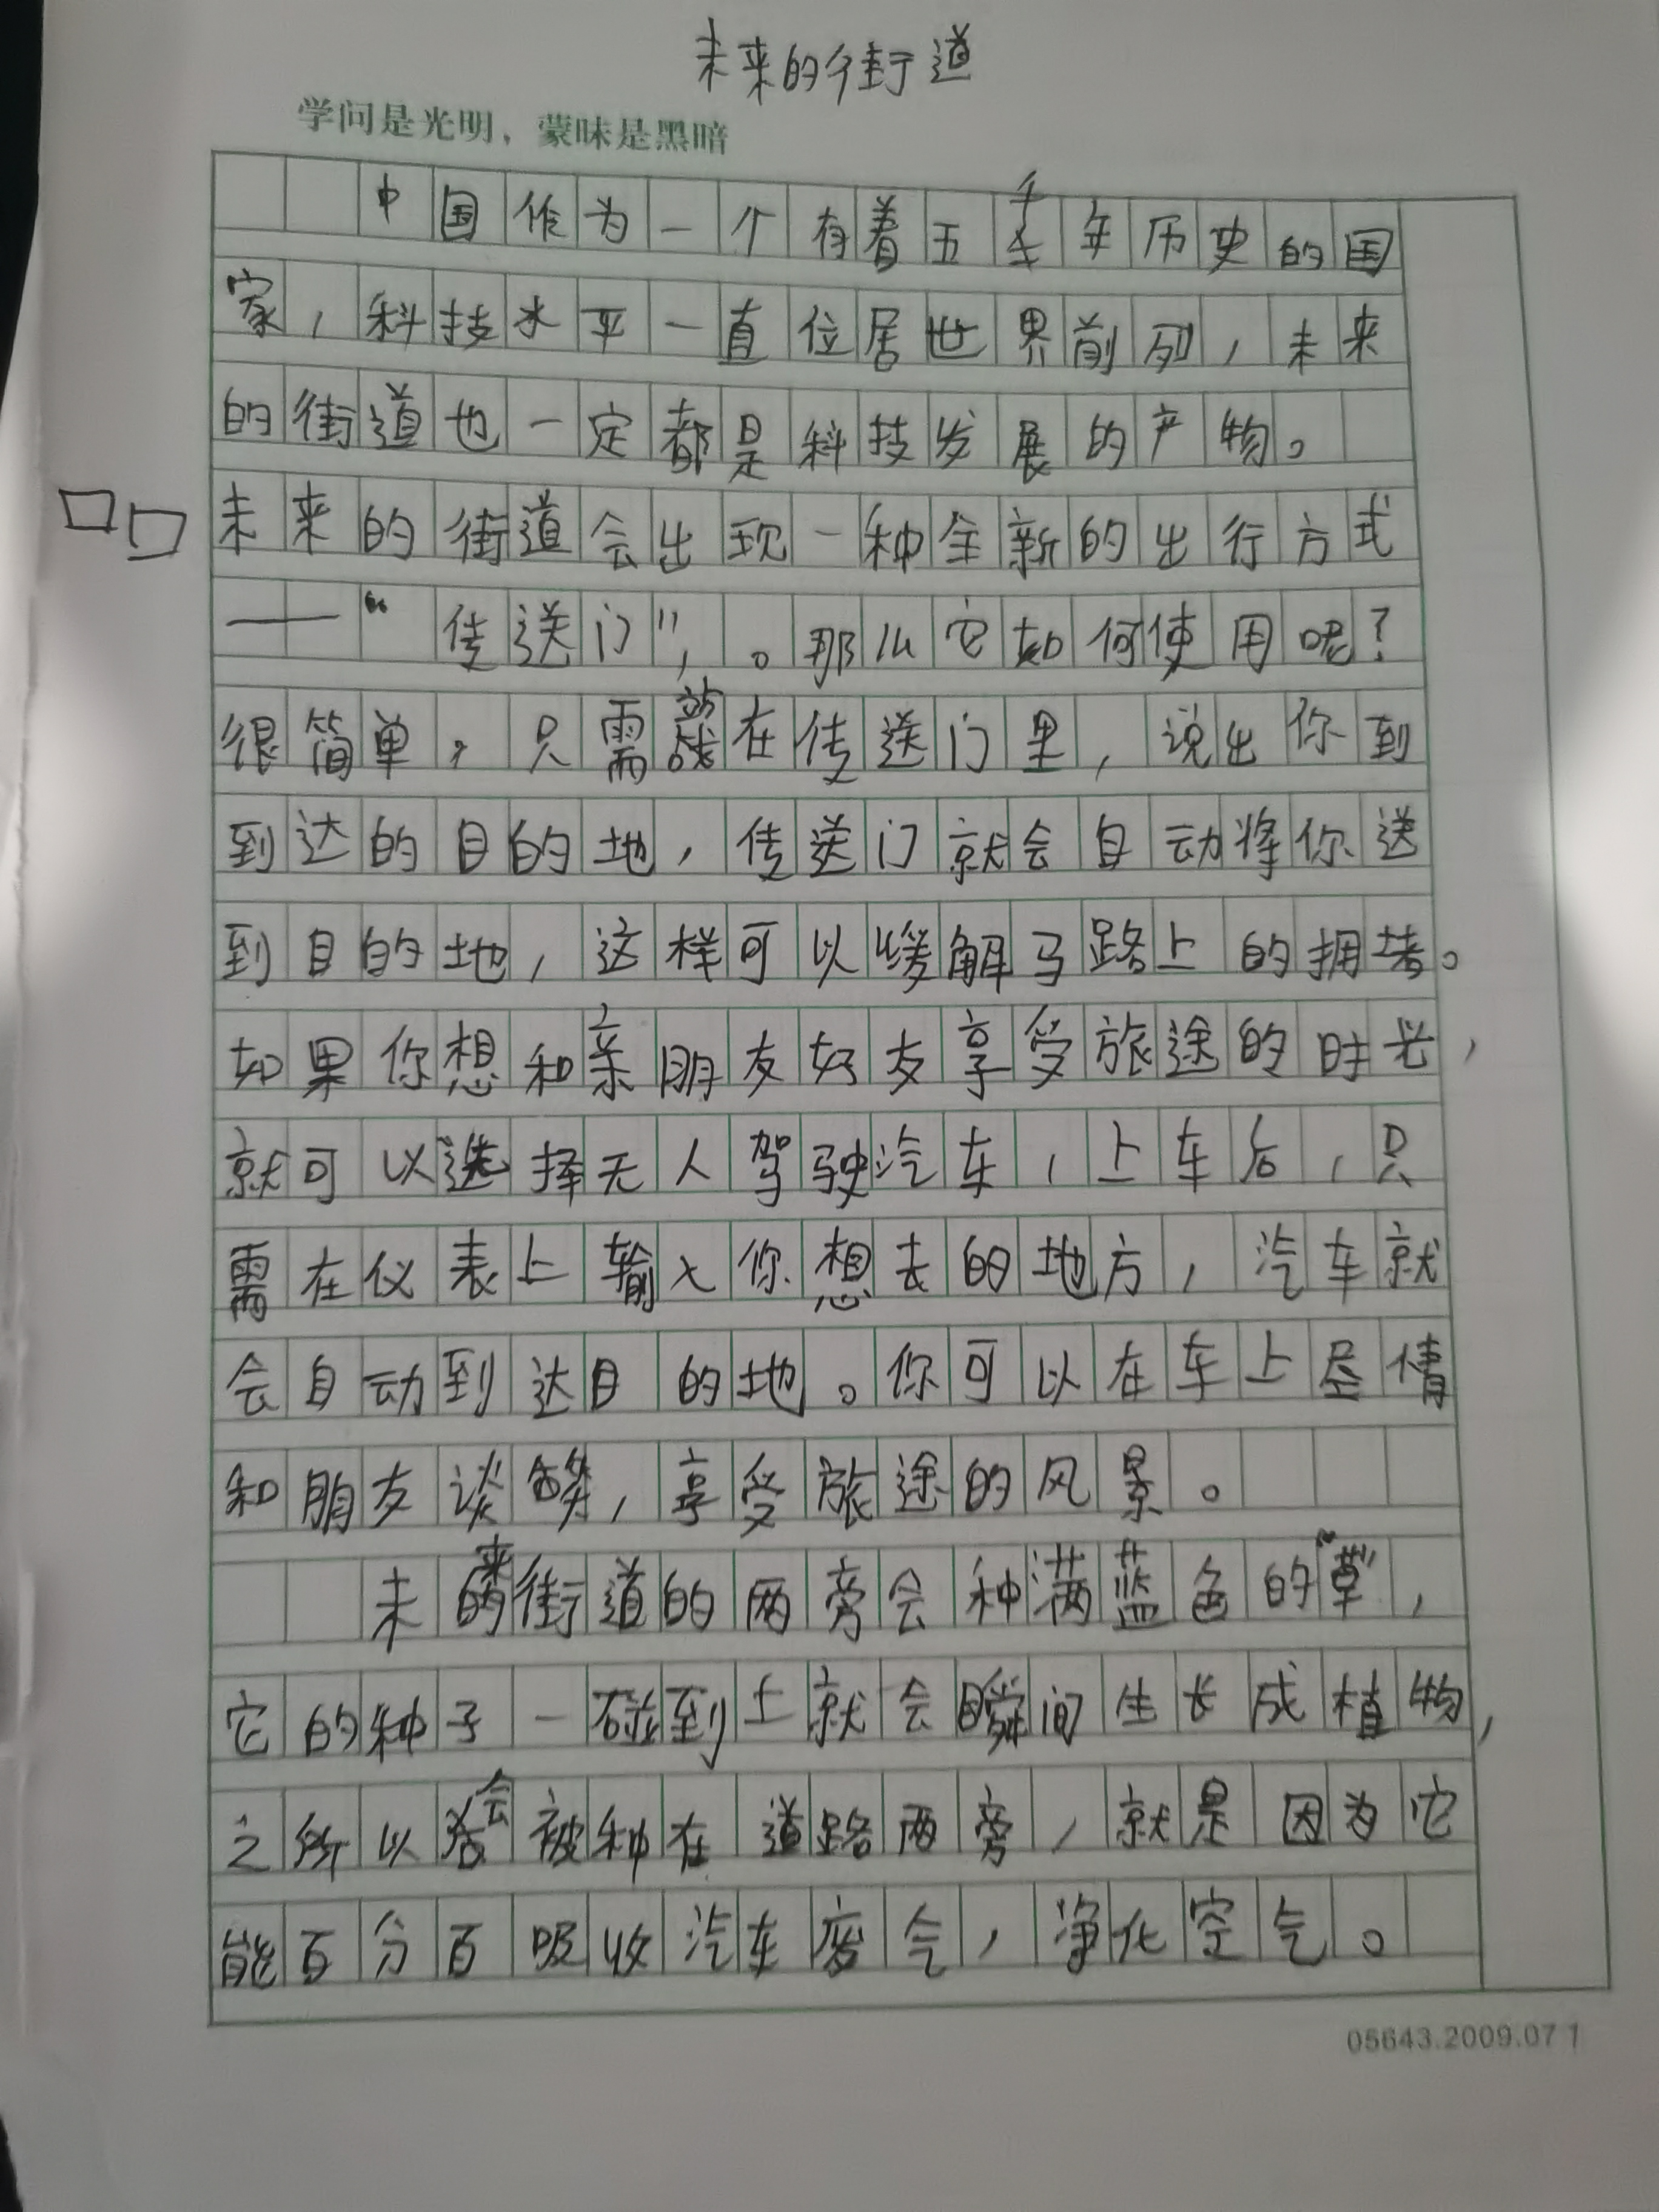 未来的街道
学问是光明，蒙昧是黑暗
中国作为一个有着五千年历史的国
家，科技水平一直位居世界前列，未来
的街道也一定都是科技发展的产物。
未来的街道会出现一种全新的出行方式
——“传送门”，。那么它如何使用呢？
很简单，只需站在传送门里，说出你到
到达的目的地，传送门就会自动将你送
到目的地，这样可以缓解马路上的拥堵。
如果你想和亲朋友好友享受旅途的时光，
就可以选择无人驾驶汽车，上车后，只
需在仪表上输入你想去的地方，汽车就
会自动到达目的地。你可以在车上尽情
和朋友谈笑，享受旅途的风景。
未来街道的两旁会种满蓝色的“草”，
它的种子一碰到土就会瞬间生长成植物，
之所以会被种在道路两旁，就是因为它
能百分百吸收汽车废气，净化空气。
05643.2009.07 1